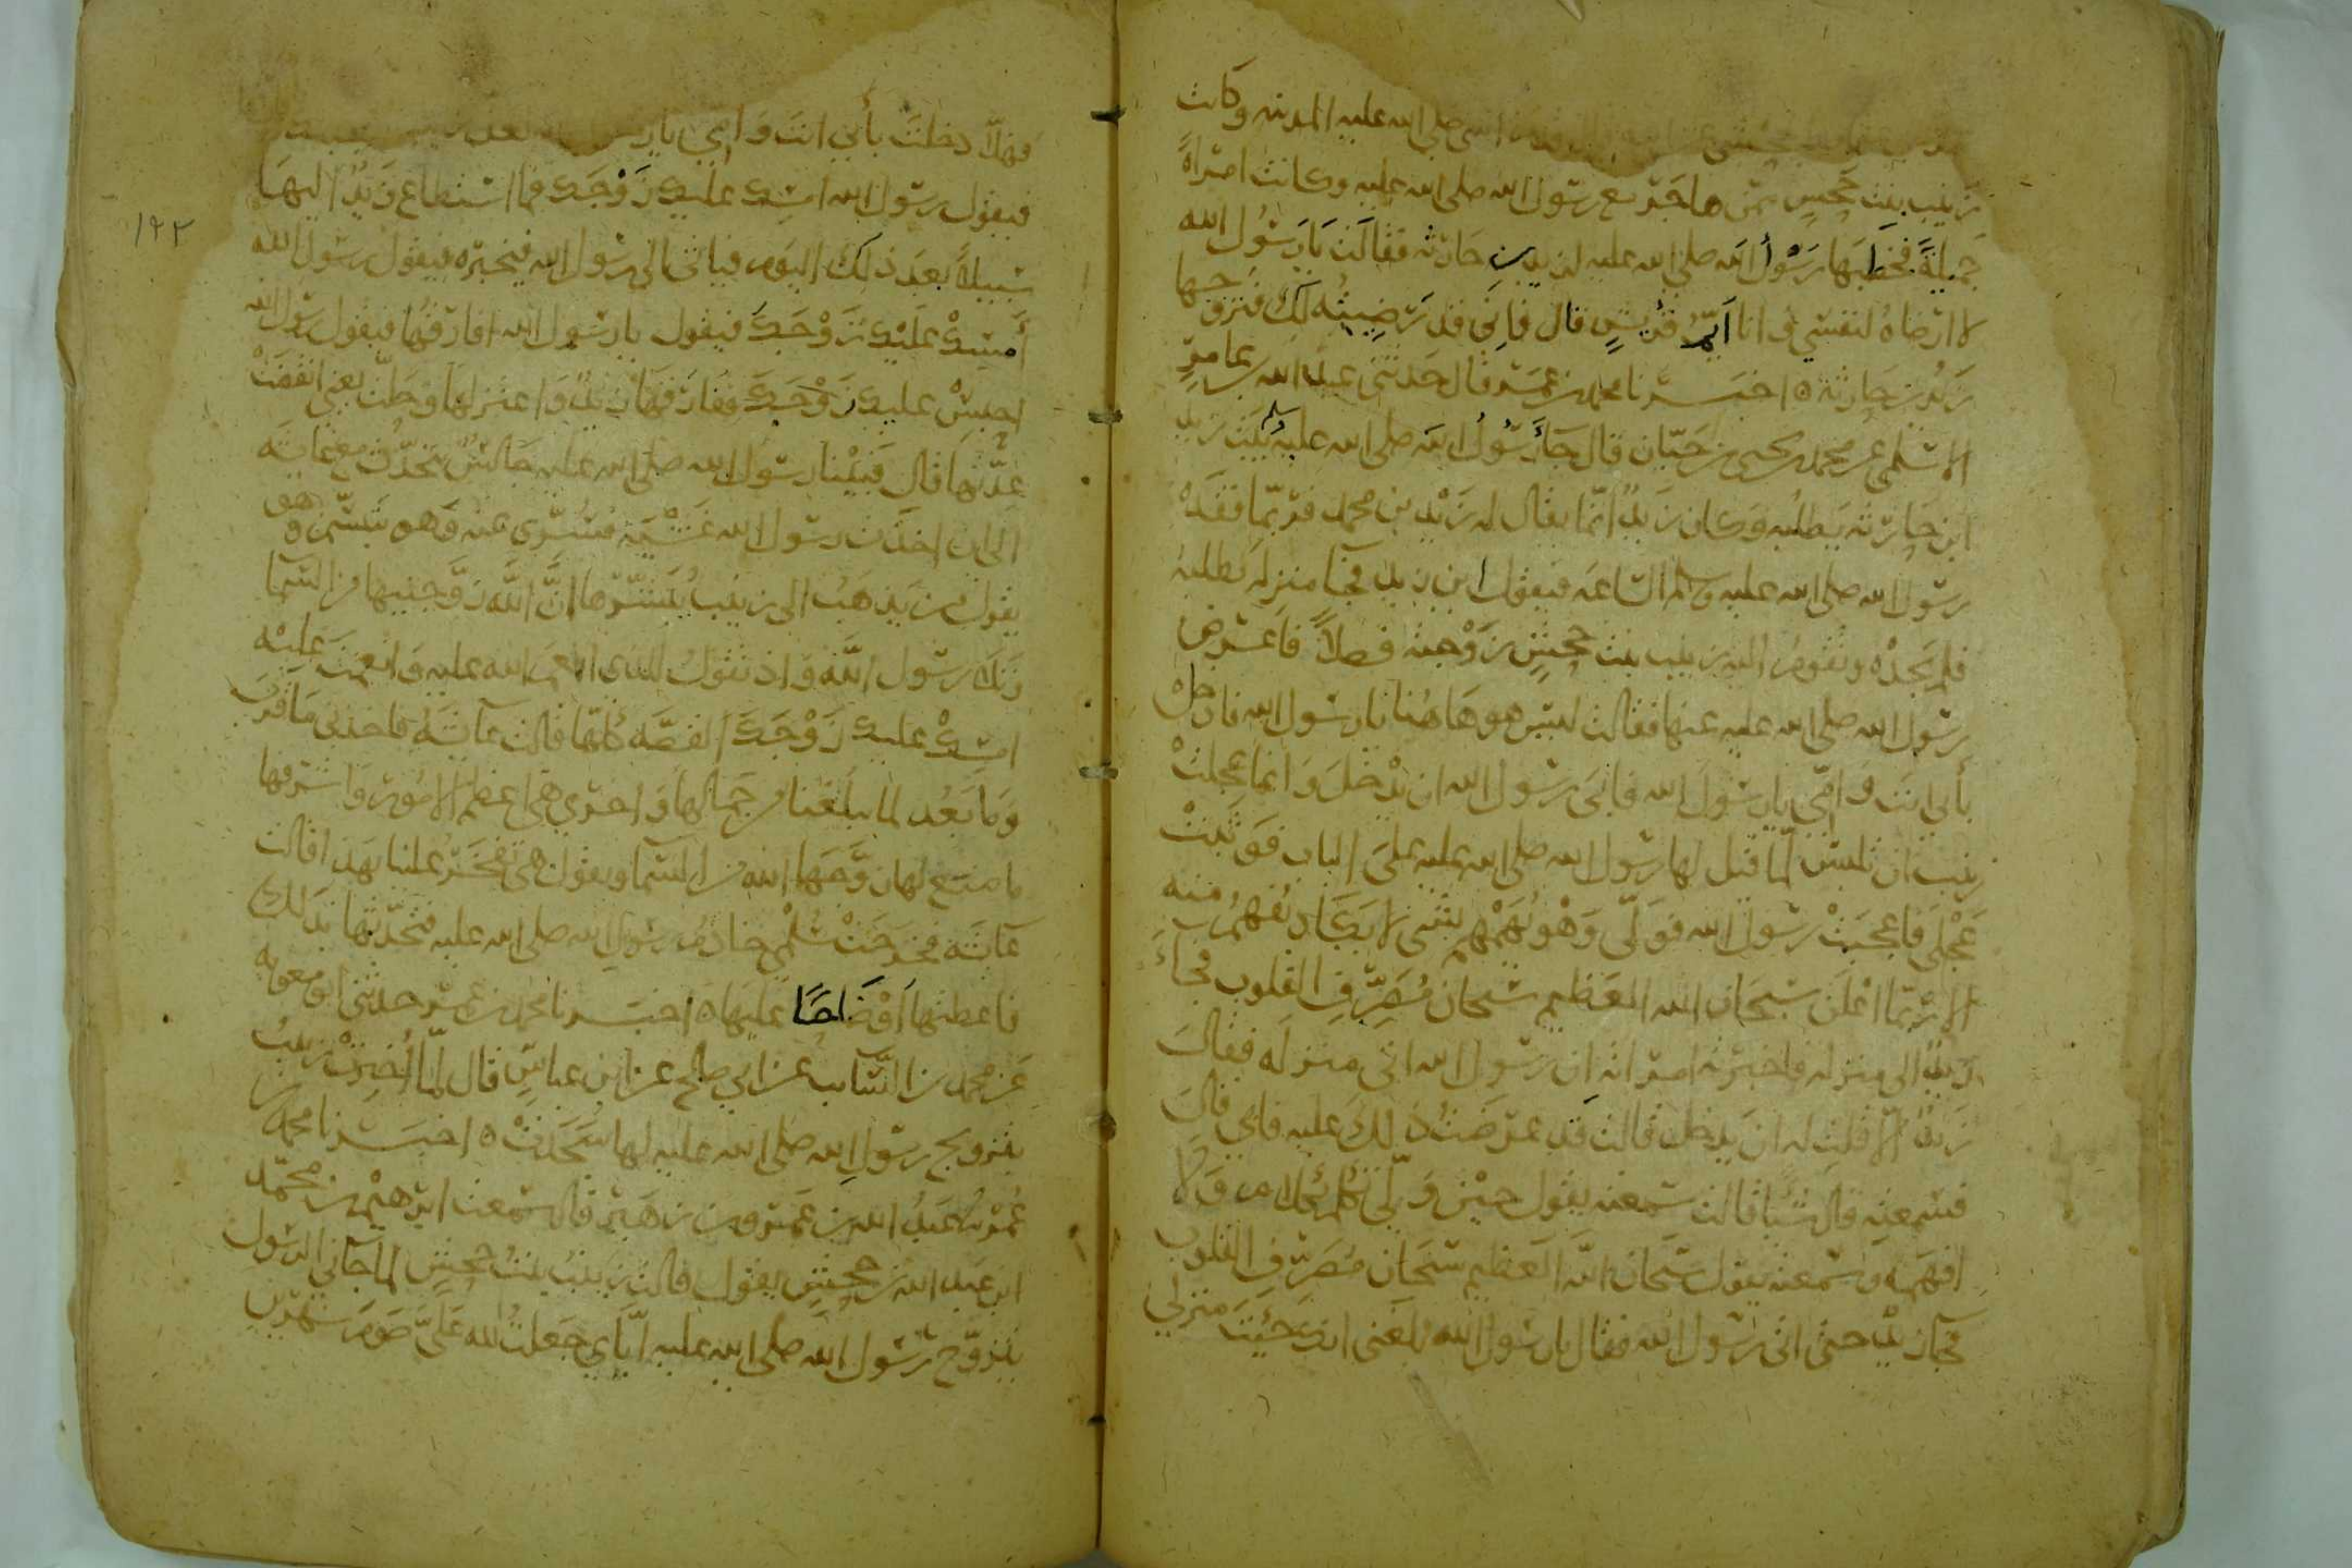 الله صلى الله عليه المدينه وكانت
زينب بنت جحش ممن هاجر مع رسول الله صلى الله عليه وكانت امراة
جميلة فخطبها رسول الله صلى الله عليه لزيد بن حارثه فقالت يا رسول الله
لا ارضاه لنفسي وانا ايم قريش قال فاني قد رضيته لك فتزوجها
زيد بن حارثة ه اخبرنا محمد بن عمر قال حدثني عبد الله بن عامر
الاسلمي عن محمد بن يحيى بن حبان قال جا رسول الله صلى الله عليه بيت زيد
ابن حارثه يطلبه وكان زيد انما يقال له زيد بن محمد فربما فقده
رسول الله صلى الله عليه وسلم الساعه فيقول اين زيد فجا منزله يطلبه
فلم يجده وتقوم اليه زينب بنت جحش زوجته فضلا فاعرض
رسول الله صلى الله عليه عنها فقالت ليس هو هاهنا يا رسول الله فادخل
بأبي انت وامي يا رسول الله فابى رسول الله ان يدخل وانما عجلت
زينب ان تلبس لما قيل لها رسول الله صلى الله عليه على الباب فوثبت
عجلى فاعجبت رسول الله فولى وهو يهمهم بشى لا يكاد يفهم منه
الا ربما اعلن سبحان الله العظيم سبحان مصرف القلوب فجاء
زيد الى منزله فاخبرته امراته ان رسول الله اتى منزله فقال
زيد الا قلت له ان يدخل قالت قد عرضت ذلك عليه فابي قال
فسمعته قال شيا قالت سمعته يقول حين ولى تكلم بكلام ولا
افهمه وسمعته يقول سبحان الله العظيم سبحان مصرف القلوب
فجا زيد حتى اتى رسول الله فقال يا رسول الله بلغني انك جيت منزلي
فهلا دخلت بأبي انت وامي يا
فيقول رسول الله امسك عليك زوجك فما استطاع زيد اليها
سبيلا بعد ذلك اليوم فياتي الى رسول الله فيخبره فيقول رسول الله
أمسك عليك زوجك فيقول يا رسول الله افارقها فيقول رسول الله
احبس عليك زوجك ففارقها زيد واعتزلها وحلت يعني انقضت
عدتها قال فبينا رسول الله صلى الله عليه جالس يتحدث مع عائشه
الى ان اخذت رسول الله غشية فسري عنه وهو يتبسم وهو
يقول من يذهب الى زينب يبشرها ان الله زوجنيها من السما
وتلا رسول الله واذ تقول للذي انعم الله عليه وانعمت عليه
امسك عليك زوجك القصه كلها قالت عائشه فاخذني ما قرب
وما بعد لما يبلغنا من جمالها واخرى هي اعظم الامور واشرفها
ما صنع لها زوجها الله من السما وقلت هي تفخر علينا بهذا قالت
عائشه فخرجت سلمى خادم رسول الله صلى الله عليه فتحدثها بذلك
فاعطتها اوضاحا عليها ه اخبرنا محمد بن عمر حدثني ابو معويه
عن محمد بن السائب عن ابي صالح عن ابن عباس قال لما أخبرت زينب
بتزويج رسول الله صلى الله عليه لها سجدت ه اخبرنا محمد بن
عمر نا عبد الله بن عمرو بن زهير قال سمعت ابرهيم بن محمد
ابن عبد الله بن جحش يقول قالت زينب بنت جحش لما جاني الرسول
بتزوج رسول الله صلى الله عليه اياي جعلت لله علي صوم شهرين
١٢٢